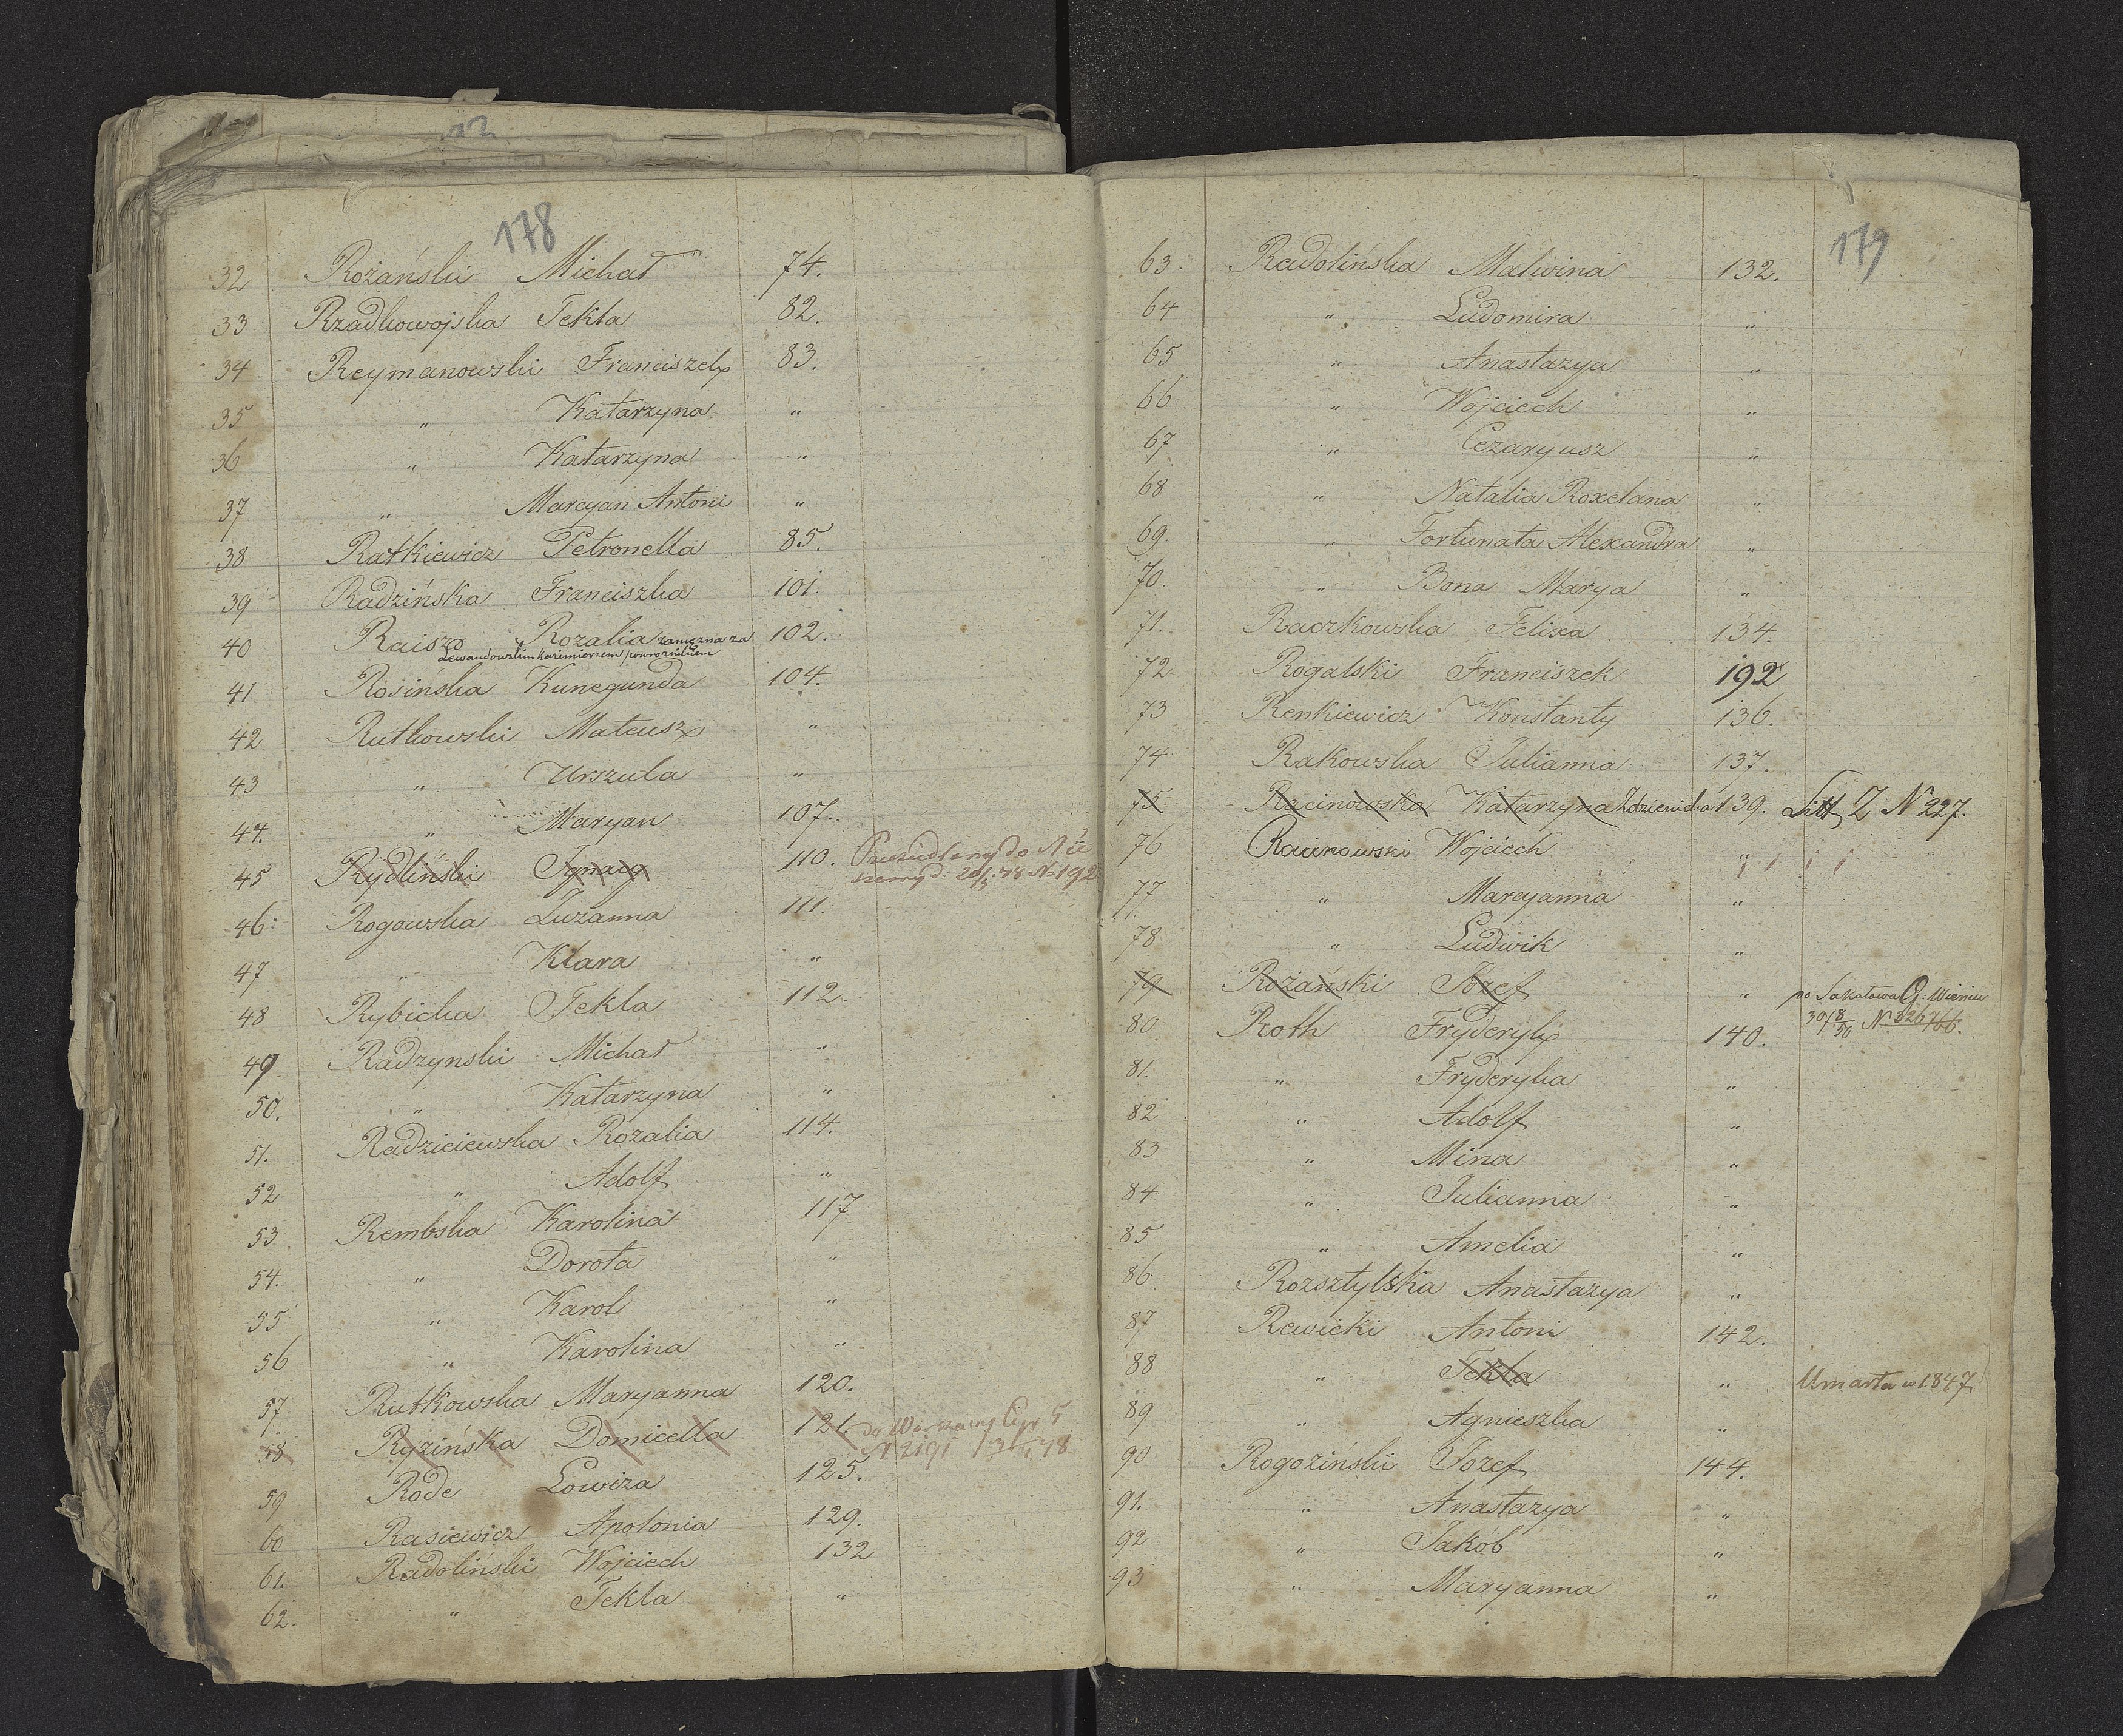 178
32 Rożański Michał 74.
33 Rzadkowojska Tekla 82.
34 Reymanowski Franciszek 83.
35 " Katarzyna "
36 " Katarzyna "
37 " Marcyan Antoni "
38 Ratkiewicz Petronella 85.
39 Radzińska Franciszka 101.
40 Raisz Rozalia zamężna za 102.
Lewandowskim Kazimierzem powroźnikiem
41 Rosinska Kunegunda 104.
42 Rutkowski Mateusz "
43 " Urszula "
44. " Maryan 107.
45 Rydliński Ignacy 110. Przesiedlony do
20/5 48 N 192
46 Rogowska Zuzanna 111.
47 " Klara "
48 Rybicka Tekla 112.
49 Radzynski Michał "
50. " Katarzyna "
51. Radziejewska Rozalia 114.
52 " Adolf "
53 Rembska Karolina 117
54. " Dorota "
55 " Karol "
56 " Karolina "
57. Rutkowska Maryanna 120.
58 Ryzińska Domicella 121. do Warszawy Cyr 5
N 2191
59 Rode Lowiza 125.
60 Rasiewicz Apolonia 129.
61. Radoliński Wojciech 132
62. " Tekla "
179
63. Radolińska Malwina 132.
64 " Ludomira "
65 " Anastazya "
66 " Wojciech "
67 " Cezaryusz "
68 " Natalia Roxelana "
69. " Fortunata Alexandra "
70. " Bona Marya "
71. Raczkowska Felixa 134.
72 Rogalski Franciszek 192
73 Renkiewicz Konstanty 136.
74 Rakowska Julianna 137.
75. Racinowska Katarzyna Zdzienicka 139. Litt Z N 227.
76 Racinowski Wojciech "
77 " Marcyanna "
78 " Ludwik "
79 Rożański Józef " do Sakołowa G: Wieniec
80 Roth Fryderyk 140. 30/8 50 N 326/66.
81. " Fryderyka "
82 " Adolf "
83 " Mina "
84 " Julianna "
85 " Amelia "
86 Rozsztylska Anastazya "
87 Rewicki Antoni 142.
88 " Tekla " Umarła w 1847
89 " Agnieszka "
90 Rogoziński Jozef 144.
91. " Anastazya "
92 " Jakób "
93 " Maryanna "